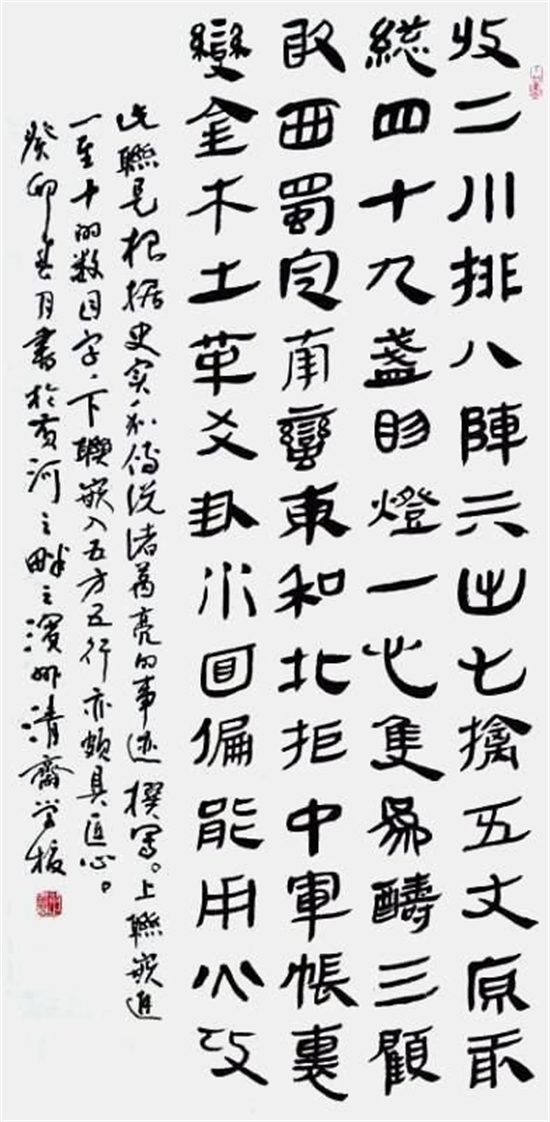 收二川排八陣六出七擒五丈原前
總四十九盞明燈一心隻為醻三顧
取西蜀定南蠻東和北拒中軍帳裏
變金木土革爻卦水面偏能用火攻
此聯是根据史实和傳说诸葛亮的事迹撰寫。上聯嵌進
一至十的数目字、下聯嵌入五方五行亦頗具匠心。
癸卯春月書於黄河之畔之濱州清齋